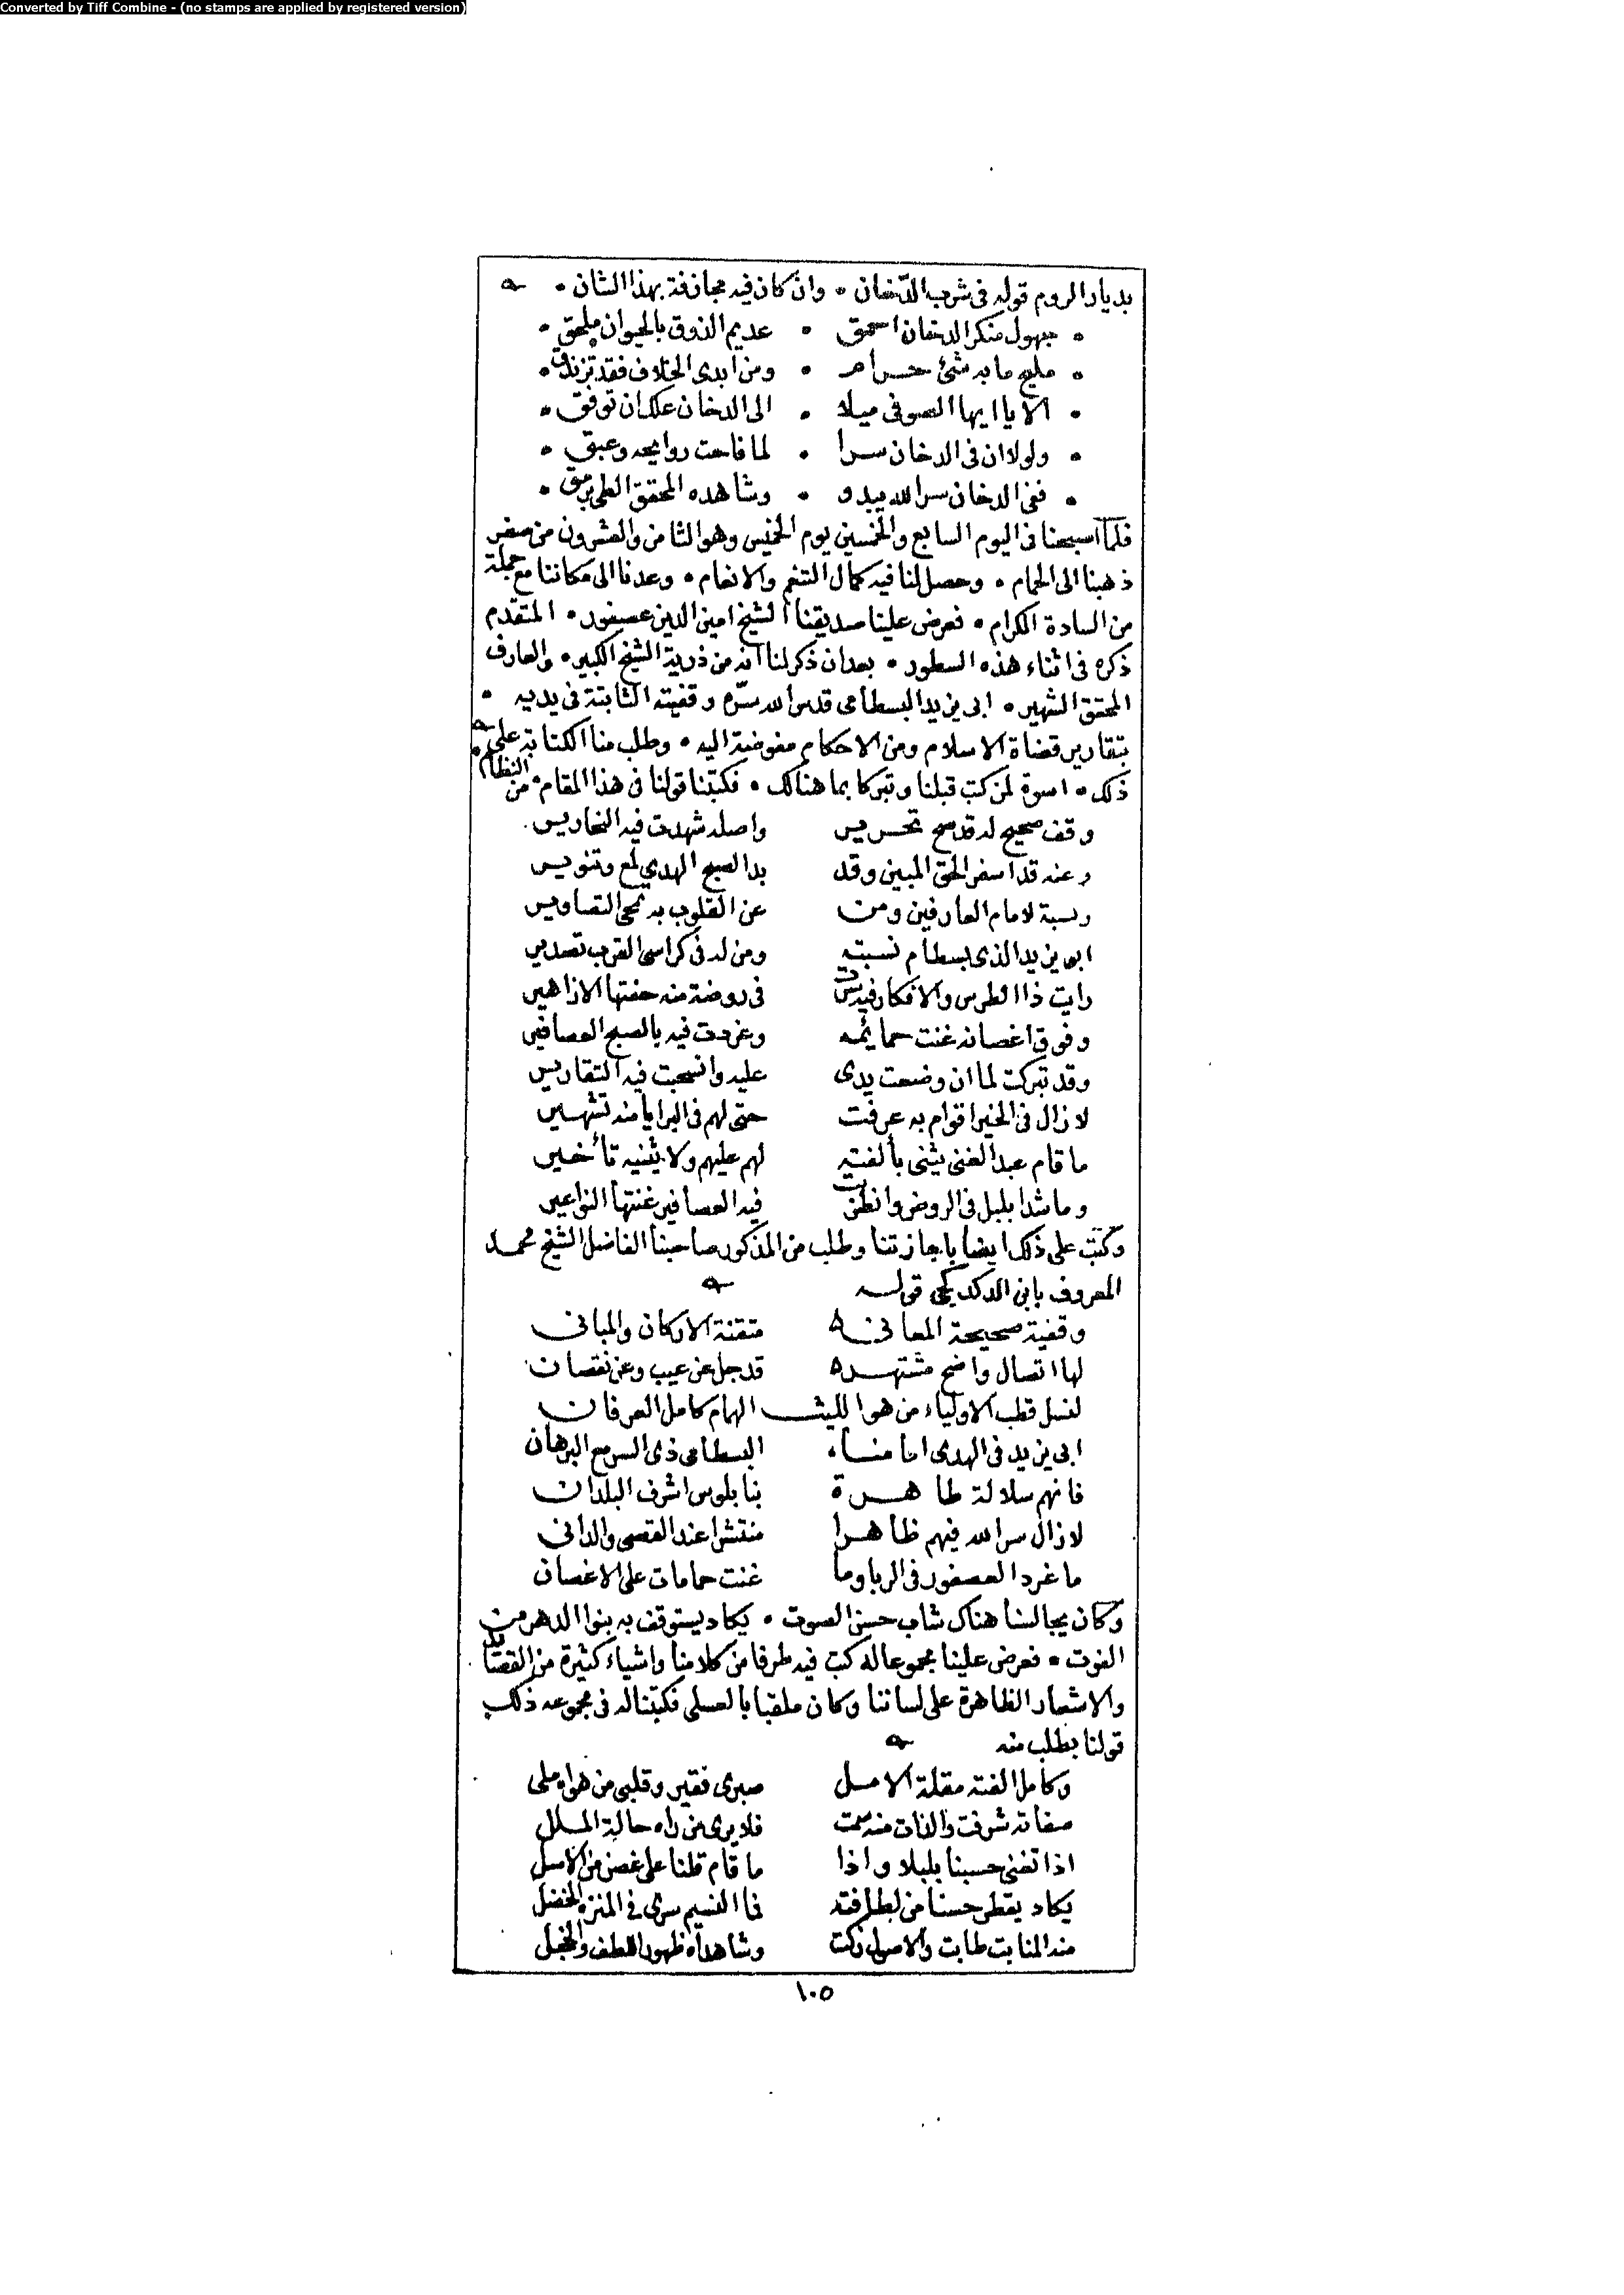 Converted by Tiff Combine - (no stamps are applied by registered version)
بديار الروم قوله فى شرب الدخان • وان كان فيه مجازفة بهذا الشان •
• جهول منكر الدخان احمق • عديم الذوق بالحيوان ملحق •
• مليح ما به شئ حرام • ومن ابدى الخلاف فقد تزندق •
• الا يا ايها الصوفى ميلا • الى الدخان علك ان توفق •
• ولولا ان فى الدخان سرا • لما فاحت روايحه وعبق •
• ففى الدخان سر الله يبدو • وشاهده المحقق
فلما اصبحنا فى اليوم السابع والخمسين يوم الخميس وهو الثامن والعشرون من صفر
ذهبنا الى الحمام • وحصل لنا فيه كمال التنعم والانعام • وعدنا الى مكاننا مع جملة
من السادة الكرام • فعرض علينا صديقنا الشيخ امين الدين عصفور • المتقدم
ذكره فى اثناء هذه السطور • بعد ان ذكر لنا انه من ذرية الشيخ الكبير • والعارف
المحقق الشهير • ابى يزيد البسطامى قدس الله سره وقفيته الثابتة فى يديه •
بتقارير قضاة الاسلام ومن الاحكام مفوضة اليه • وطلب منا الكتابة على
ذلك • اسوة لمن كتب قبلنا وتبركا بما هنالك • فكتبنا قولنا فى هذا المقام • من النظام
وقف صحيح له قد صح تحرير واصله شهدت فيه النحارير
وعنه قد اسفر الحق المبين وقد بدا لصبح الهدى لمع وتنوير
ونسبة لامام العارفين ومن عن القلوب به تمحى التصاوير
ابو يزيد الذى بسطام نسبته ومن له فى كراسى القرب تصدير
رايت ذا الطرس والافكار فيه سرت فى روضة منه حفتها الازاهير
وفوق اغصانه غنت حمايمه وغردت فيه بالصبح العصافير
وقد تبركت لما ان وضعت يدى عليه وانسحبت فيه التقارير
لا زال فى الخير اقوام به عرفت حتى لهم فى البرايا منه تشهير
ما قام عبد الغنى يثنى بألفته لهم عليهم ولا يثنيه تأخير
وما شدا بلبل فى الروض وانطلقت فيه العصافير غنتها النواعير
وكتب على ذلك ايضا باجازتنا وطلب من المذكور صاحبنا الفاضل الشيخ محمد
المعروف بابن الدكدكجى قوله
وقفية صحيحة المعانى متقنة الاركان والمبانى
لها اتصال واضح مشتهر قد جل عن عيب وعن نقصان
لنسل قطب الاولياء من هو الليث الهمام كامل العرفان
ابى يزيد فى الهدى امامنا البسطامى ذى السر مع البرهان
فانهم سلالة طاهرة بنابلوس اشرف البلدان
لا زال سر الله فيهم ظاهرا منتشرا عند القصى والدانى
ما غرد العصفور فى الربا وما غنت حمامات على الاغصان
وكان يجالسنا هناك شاب حسن الصوت • يكاد يستوقف به بنوا الدهر من
الفوت • فعرض علينا مجموعا له كتب فيه طرفا من كلامنا واشياء كثيرة من القصائد
والاشعار الظاهرة على لساننا وكان ملقبا بالعسلى فكتبنا له فى مجموعه ذلك
قولنا بطلب منه
وكامل الفته مقلة الامل صبرى فقير وقلبى من هواه ملى
صفاته شرفت والذات منه سمت فلا يرى من راه حالة الملل
اذا تغنى حسبنا بلبلا واذا ما قام قلنا على غصن من الاسل
يكاد يقطر حسنا من لطافته فما النسيم سرى فى المنزه الخضل
منه المنابت طابت والاصول زكت وشاهداه ظهور اللطف والخجل
١٠٥